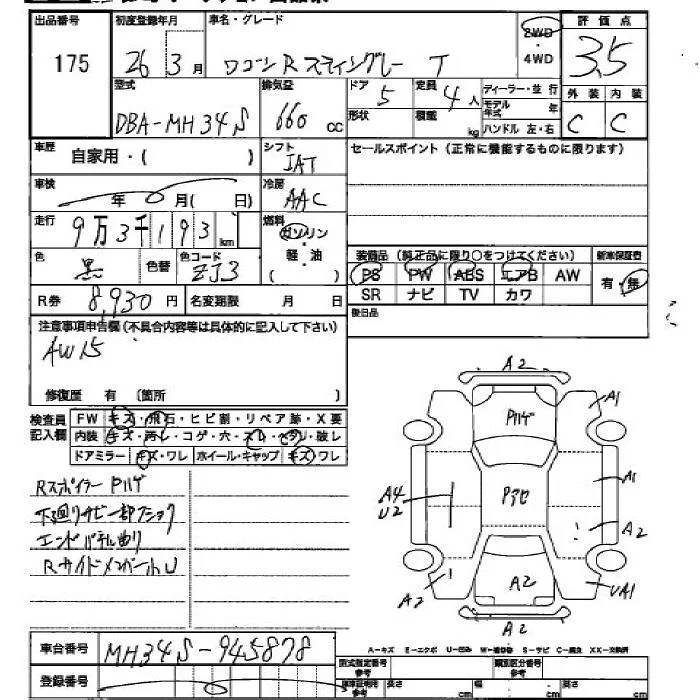 出品番号 初度登録年月 車名・グレード 2WD 評価点
175 26 3月 ワゴンR スティングレー T 4WD 3.5
型式 排気量 ドア 5 定員 4人 ディーラー・並行 外装 内装
DBA-MH34S 660cc 形状 積載 kg モデル年式 年 C C
ハンドル 左・右
車歴 自家用・( ) シフト IAT セールスポイント(正常に機能するものに限ります)
車検 年 月( 日) 冷房 AAC
走行 9万3千193km 燃料 ガソリン・軽油
装備品(純正品に限り○をつけてください) 新車保証書
色 黒 色替 色コード ZJ3 PS PW ABS エアB AW 有・無
SR ナビ TV カワ
R券 8,930円 名変期限 月 日 後日品
注意事項申告欄(不具合内容等は具体的に記入して下さい)
AW15
修復歴 有 〔箇所 〕
検査員記入欄 FW キズ・飛石・ヒビ割・リペア跡・X要
内装 キズ・汚レ・コゲ・穴・スレ・ヘタリ・破レ
ドアミラー キズ・ワレ ホイール・キャップ キズ・ワレ
Rスポイラー Pハゲ
下廻りサビ一部
エンドパネル曲り
Rサイドメンバー凹U
A2
A1
Pハゲ
A1
A4
U2
A2
A2
A2
UA1
A2
A-キズ E-エクボ U-凹み W-補修跡 S-サビ C-腐食 XX-交換済
車台番号 MH34S-945878
型式指定番号 参考 類別区分番号 参考
登録番号
車庫証明用 参考 長さ cm 幅 cm 高さ cm